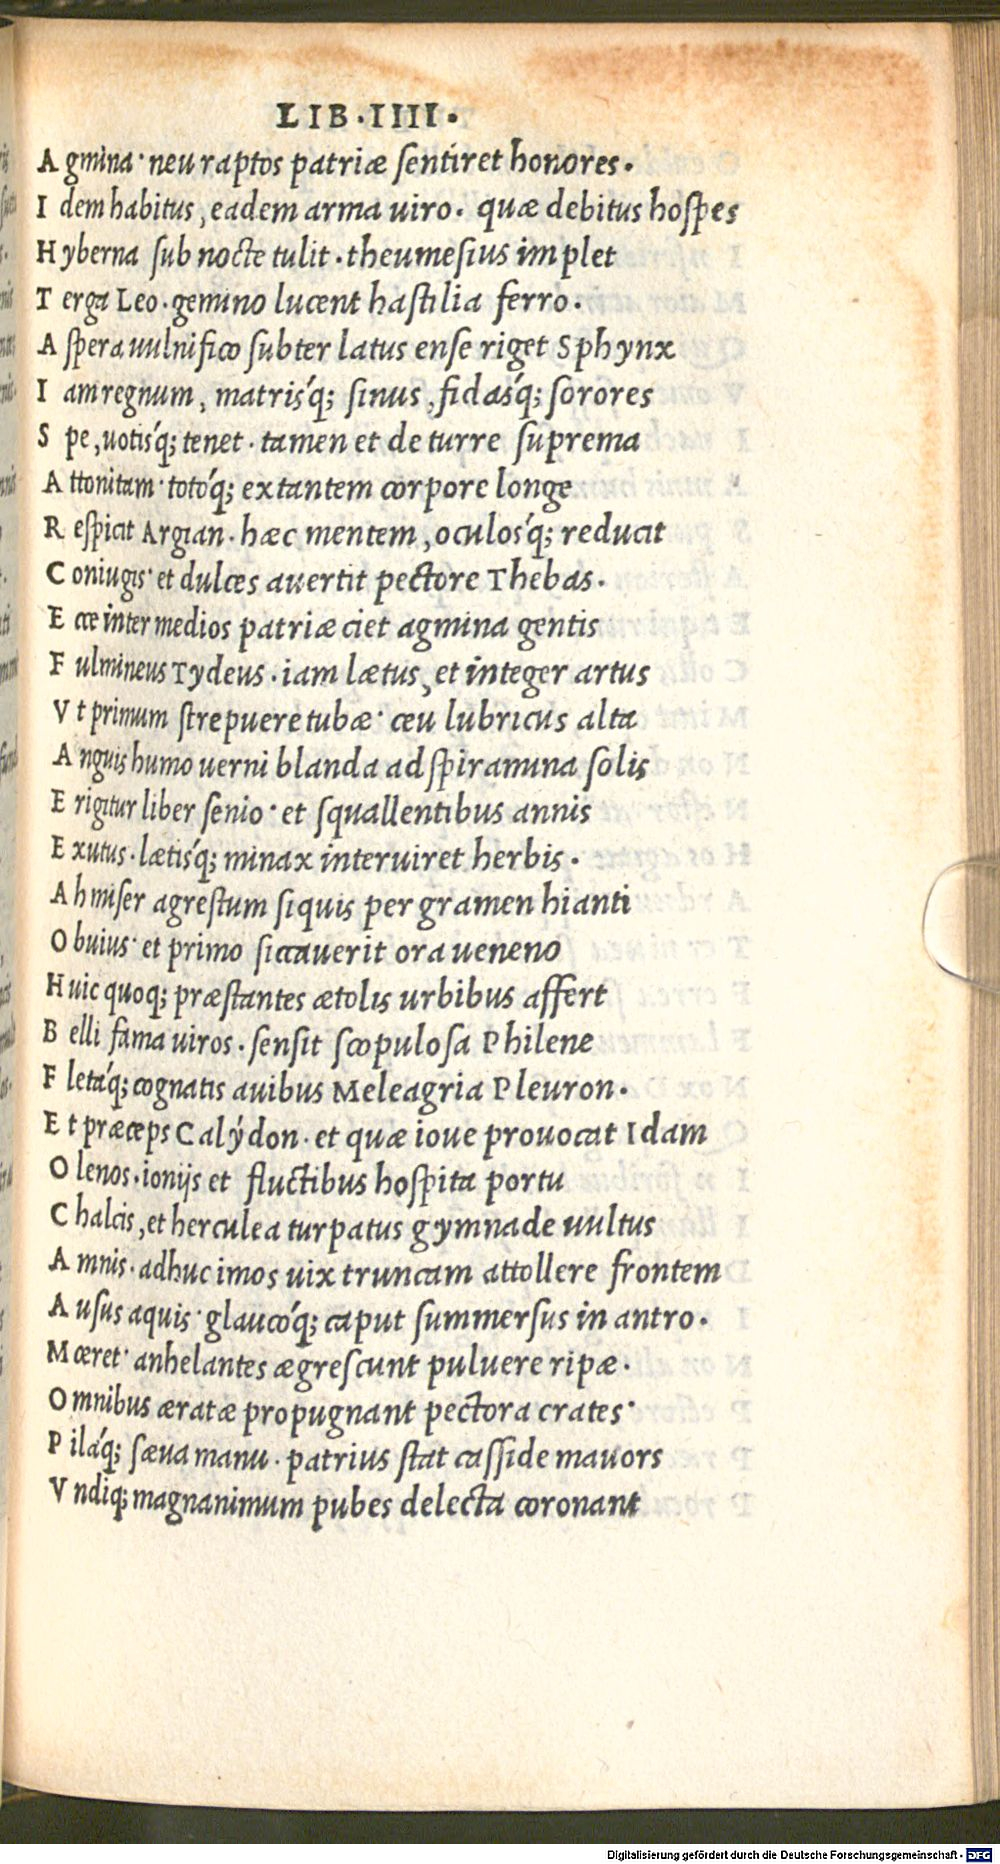 LIB·IIII·
A gmina· neu raptos patriæ sentiret honores·
I dem habitus, eadem arma uiro· quæ debitus hospes
H yberna sub nocte tulit· theumesius implet
T erga Leo· gemino lucent hastilia ferro·
A spera uulnifico subter latus ense riget Sphynx
I am regnum, matrisq́; sinus, fidasq́; sorores
S pe, uotisq́; tenet· tamen et de turre suprema
A ttonitam· totoq́; extantem corpore longe
R espicit Argian· hæc mentem, oculosq́; reducit
C oniugis· et dulces auertit pectore Thebas·
E cce inter medios patriæ ciet agmina gentis
F ulmineus Tydeus· iam lætus, et integer artus
V t primum strepuere tubæ· ceu lubricus alta
A nguis humo uerni blanda ad spiramina solis
E rigitur liber senio· et squallentibus annis
E xutus· lætisq́; minax interuiret herbis·
A h miser agrestum siquis per gramen hianti
O buius· et primo siccauerit ora ueneno
H uic quoq; præstantes ætolis urbibus affert
B elli fama uiros· sensit scopulosa Philene
F letaq́; cognatis auibus Meleagria Pleuron·
E t præceps Calýdon· et quæ ioue prouocat Idam
O lenos· ionijs et fluctibus hospita portu
C halcis, et herculea turpatus gymnade uultus
A mnis· adhuc imos uix truncam attollere frontem
A usus aquis· glaucoq́; caput summersus in antro·
M œret· anhelantes ægrescunt puluere ripæ·
O mnibus æratæ propugnant pectora crates·
P ilaq́; sæua manu· patrius stat casside mauors
V ndiq; magnanimum pubes delecta coronant
Digitalisierung gefördert durch die Deutsche Forschungsgemeinschaft · DFG